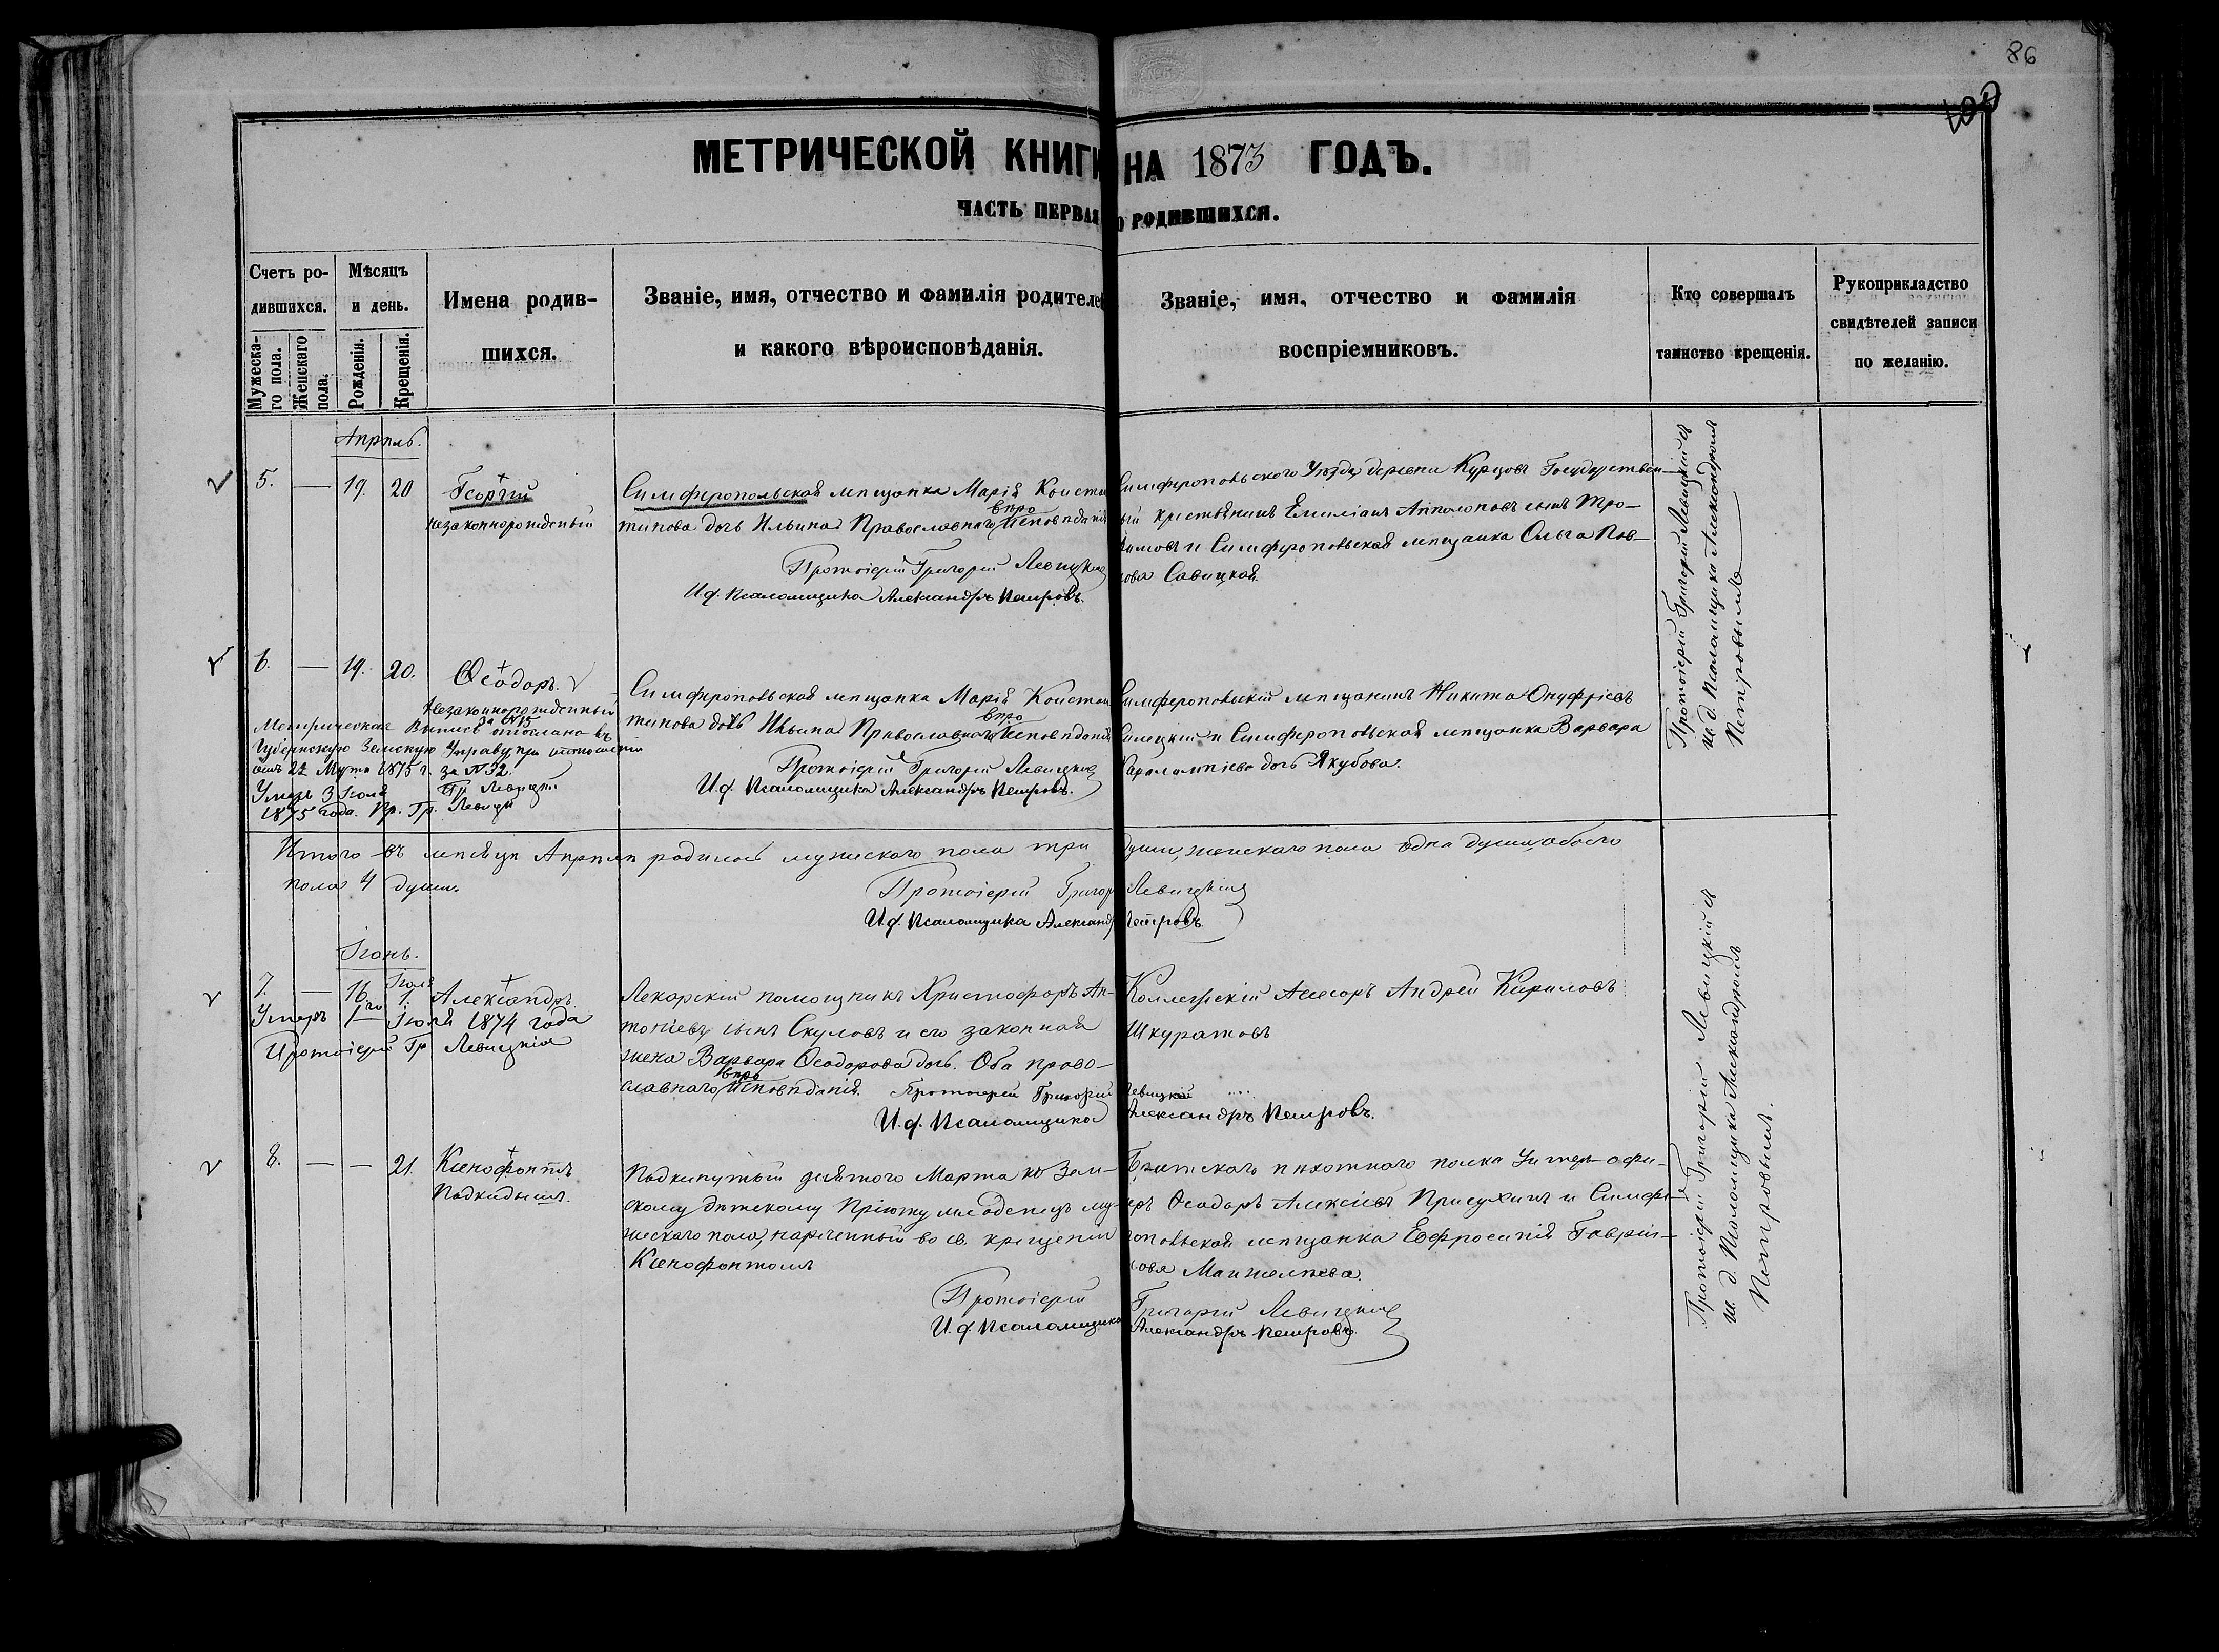 86
МЕТРИЧЕСКОЙ КНИГИ НА 1873 ГОДЪ.
ЧАСТЬ ПЕРВАЯ О РОДИВШИХСЯ.
Счетъ ро-
дившихся.
Мужеска-
го пола.
Женскаго
пола.
Мѣсяцъ
и день.
Рожденія.
Крещенія.
Имена родив-
шихся.
Званіе, имя, отчество и фамилія родителей
и какого вѣроисповѣданія.
Званіе, имя, отчество и фамилія
воспріемниковъ.
Кто совершалъ
таинство крещенія.
Рукоприкладство
свидѣтелей записи
по желанію.
Апрѣль.
5. — 19. 20
Георгій
незаконнорожденный
Симферопольская мѣщанка Марія Констан
тинова дочь Ильина Православнаго вѣроисповѣданія
Протоіерей Григорій Левицкій
И.д. Псаломщика Александръ Петровъ.
Симферопольскаго Уѣзда деревни Курцовъ Государствен-
ый крестьянинъ Емиліанъ Апполоновъ сынъ Тро-
имовъ и Симферопольская мѣщанка Ольга Пав-
лова Савицкая.
Протоіерей Григорій Левицкій съ
и. д. Псаломщика Александромъ
Петровымъ
6. — 19. 20.
Ѳеодоръ.
Незаконнорожденный
Метрическая Выпись за №15 отослана въ
Губернскую Земскую Управу при отношеніи
отъ 22 Марта 1875 г. за № 32.
Пр. Левицкій
Умеръ 3 Іюля
1875 года. Пр. Гр. Левицкій
Симферопольская мѣщанка Марія Констан
тинова дочь Ильина Православнаго вѣроисповѣданія
Протоіерей Григорій Левицкій
И.д. Псаломщика Александръ Петровъ.
Симферопольскій мѣщанинъ Никита Онуфріевъ
и Симферопольская мѣщанка Варвара
Харалампіева дочь Якубова.
Итого въ мѣсяцѣ Апрѣлѣ родилось мужскаго пола три души, женскаго пола одна душа, обоего
пола 4 души.
Протоіерей Григорій Левицкій
И.д. Псаломщика Александръ Петровъ.
Іюнь.
7. — 16. Іюля 1.
Александръ.
Умеръ 1го Іюля 1874 года
Протоіерей Гр. Левицкій
Лекарскій помощникъ Христофоръ Ан-
тоніевъ сынъ Скуловъ и его законная
жена Варвара Ѳеодорова дочь. Оба право-
славнаго вѣроисповѣданія. Протоіерей Григорій Левицкій
И.д. Псаломщика Александръ Петровъ.
Коллежскій Асессоръ Андрей Кириловъ
Шкуратовъ
8. — — 21.
Ксенофонтъ
Подкидышъ.
Подкинутый девятого Марта къ Зем-
скому дѣтскому Пріюту младенецъ му-
жескаго пола, нареченный во св. крещеніи
Ксенофонтомъ
Протоіерей Григорій Левицкій
И.д. Псаломщика Александръ Петровъ.
пѣхотнаго полка Унтеръ-офи-
церъ Ѳеодоръ Алексѣевъ Присухинъ и Симфе-
ропольская мѣщанка Евфросинія Гавріи-
лова
Протоіерей Григорій Левицкій съ
и. д. Псаломщика Александромъ
Петровымъ.